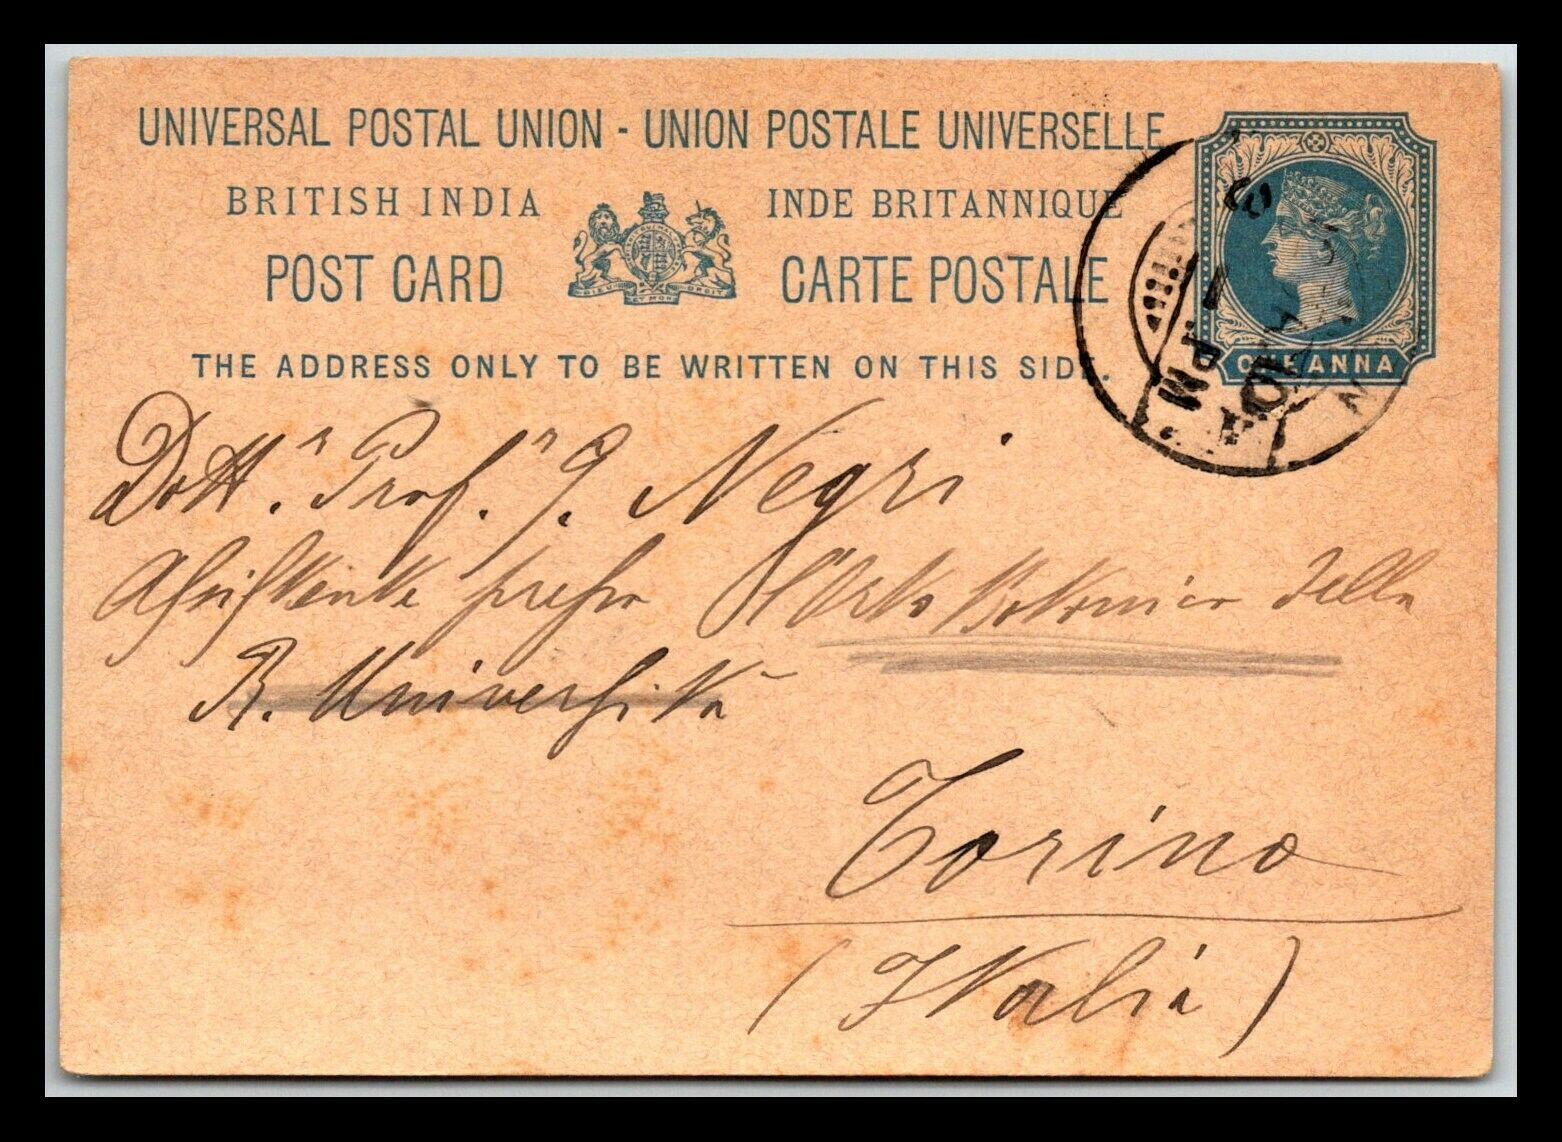 UNIVERSAL POSTAL UNION - UNION POSTALE UNIVERSELLE
BRITISH INDIA INDE BRITANNIQUE
POST CARD CARTE POSTALE
DIEU ET MON DROIT
THE ADDRESS ONLY TO BE WRITTEN ON THIS SIDE.
ONE ANNA
1 PM
Dott. Prof. J. Negri
Assistente presso l'Orto Botanico della
R. Università
Torino
(Italia)